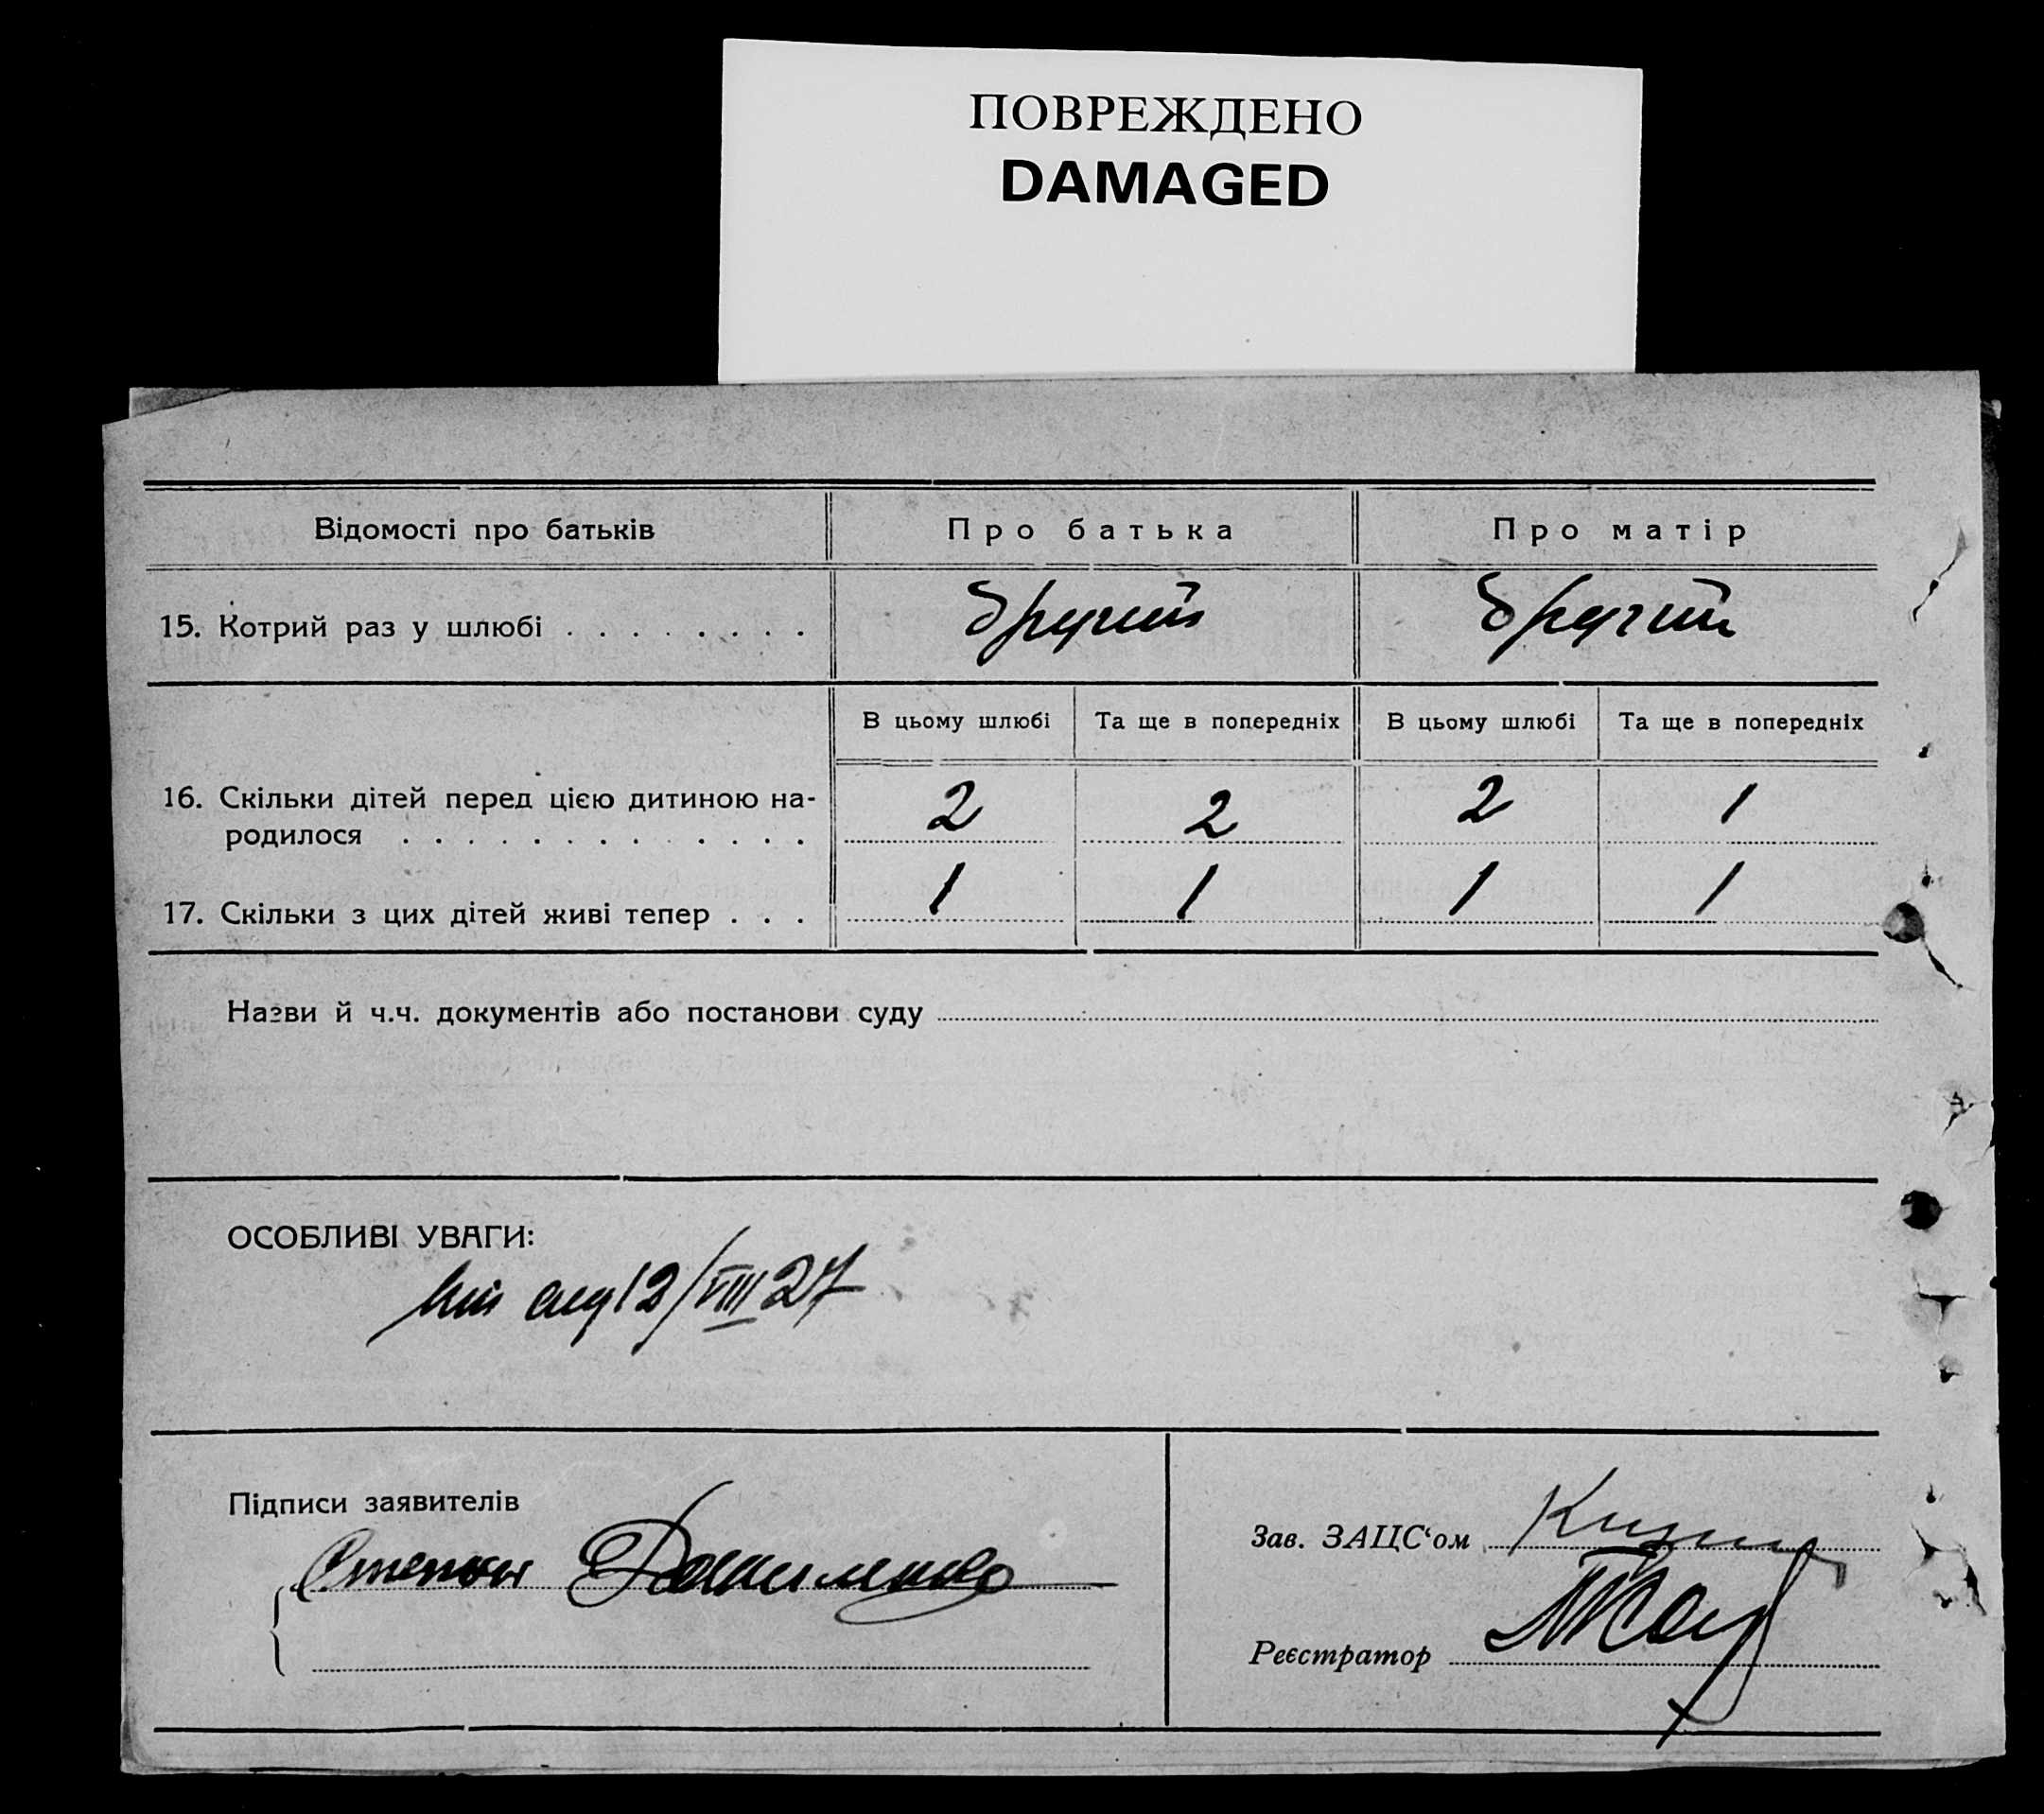 ПОВРЕЖДЕНО
DAMAGED
Відомості про батьків Про батька Про матір
15. Котрий раз у шлюбі . . . . . . . . другий другий
В цьому шлюбі Та ще в попередніх В цьому шлюбі Та ще в попередніх
16. Скільки дітей перед цією дитиною на-
родилося . . . . . . . . . . . . . 2 2 2 1
17. Скільки з цих дітей живі тепер . . . 1 1 1 1
Назви й ч.ч. документів або постанови суду
ОСОБЛИВІ УВАГИ:
12/VIII 27
Підписи заявителів
Зав. ЗАЦС‘ом
Реєстратор